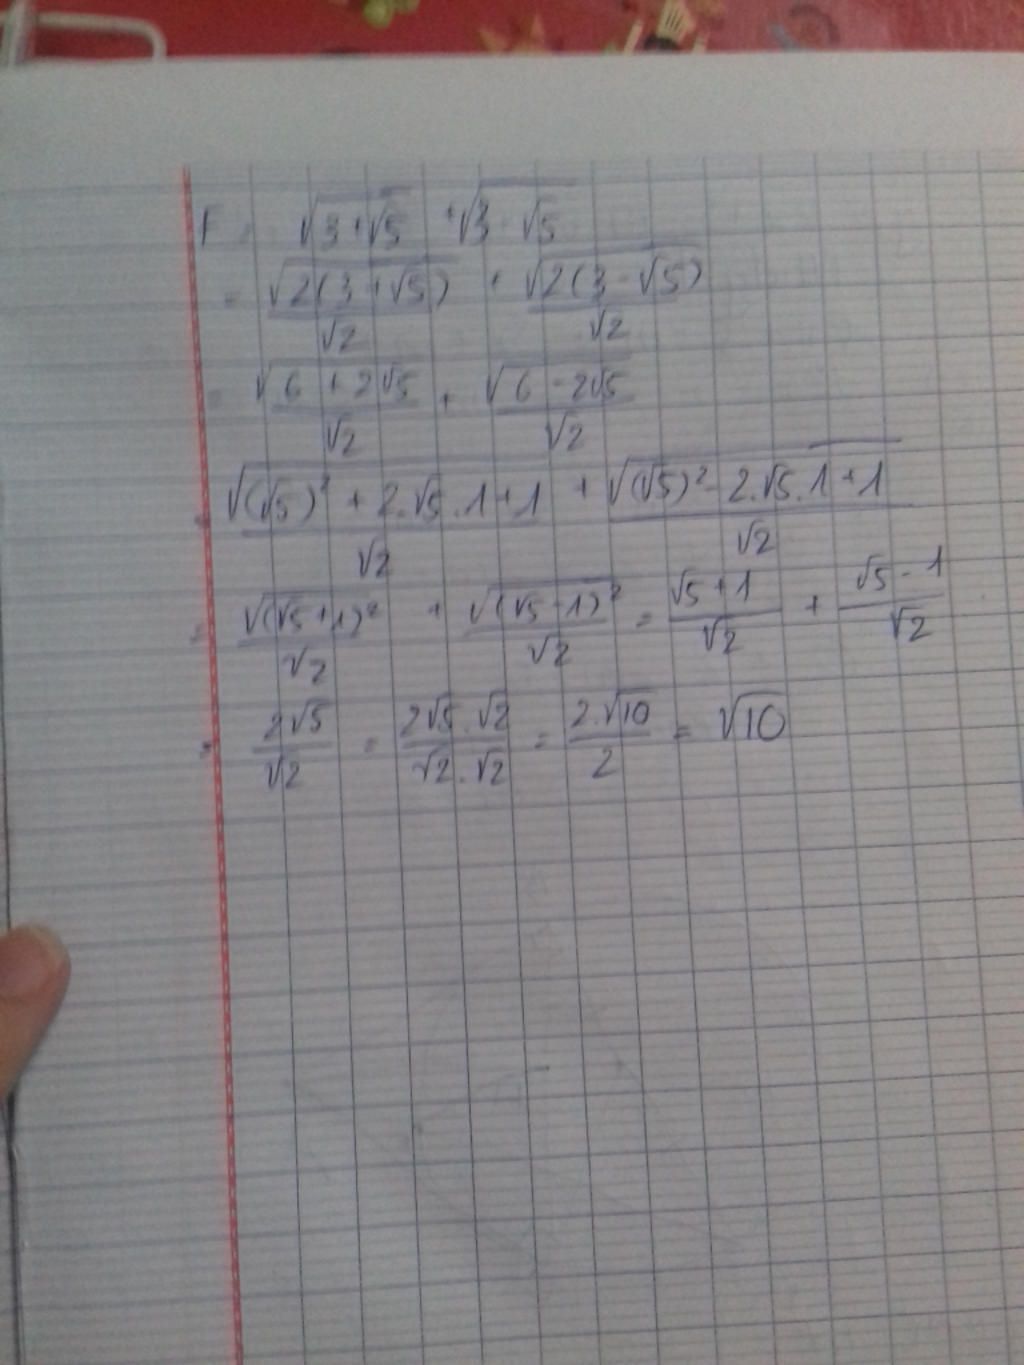 F = √(3+√5) + √(3-√5)
= √(2(3+√5))/√2 + √(2(3-√5))/√2
= √(6+2√5)/√2 + √(6-2√5)/√2
= √((√5)²+2.√5.1+1)/√2 + √((√5)²-2.√5.1+1)/√2
= √((√5+1)²)/√2 + √((√5-1)²)/√2 = (√5+1)/√2 + (√5-1)/√2
= 2√5/√2 = (2√5.√2)/(√2.√2) = 2.√10/2 = √10